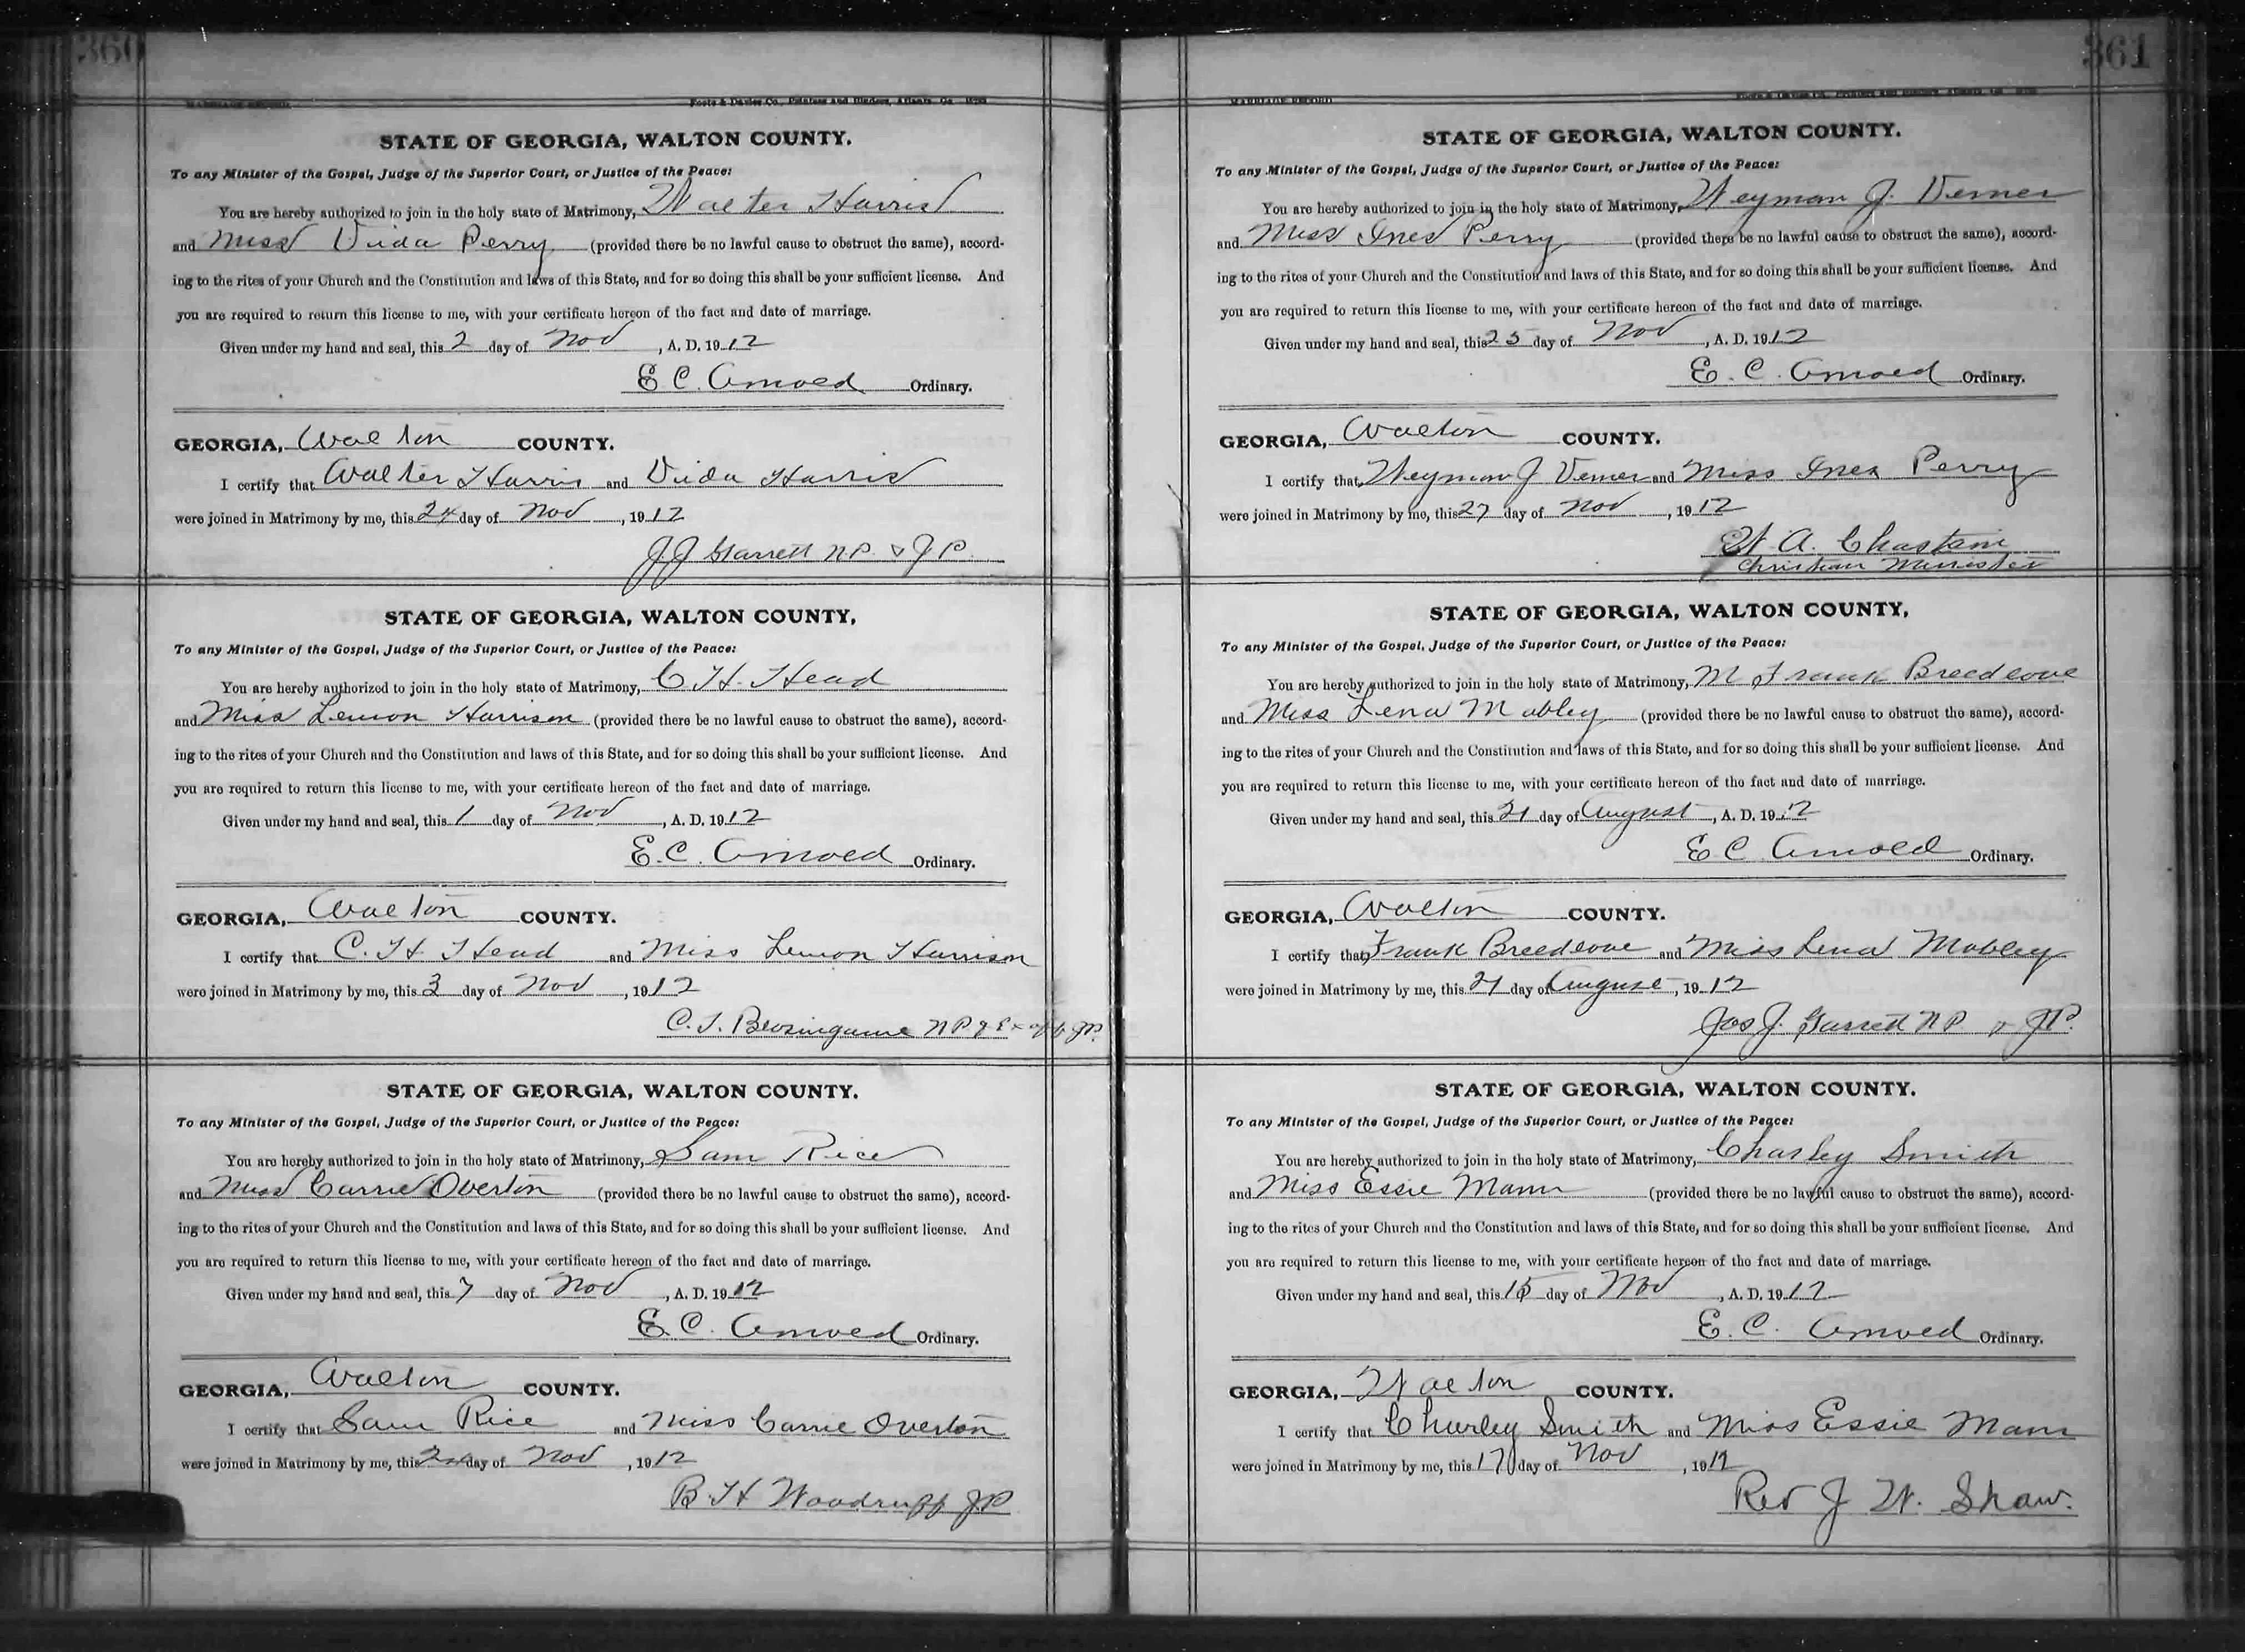 360
MARRIAGE RECORD
Foote & Davies Co., Printers and Binders, Atlanta, Ga.
STATE OF GEORGIA, WALTON COUNTY.
To any Minister of the Gospel, Judge of the Superior Court, or Justice of the Peace:
You are hereby authorized to join in the holy state of Matrimony, Walter Harris
and Miss Vida Perry (provided there be no lawful cause to obstruct the same), accord-
ing to the rites of your Church and the Constitution and laws of this State, and for so doing this shall be your sufficient license. And
you are required to return this license to me, with your certificate hereon of the fact and date of marriage.
Given under my hand and seal, this 2 day of Nov, A. D. 1912
E. C. Arnold Ordinary.
GEORGIA, Walton COUNTY.
I certify that Walter Harris and Vida Harris
were joined in Matrimony by me, this 24 day of Nov, 1912
J J Garrett N.P. & J P.
STATE OF GEORGIA, WALTON COUNTY,
To any Minister of the Gospel, Judge of the Superior Court, or Justice of the Peace:
You are hereby authorized to join in the holy state of Matrimony, C H. Head
and Miss Lemon Harrison (provided there be no lawful cause to obstruct the same), accord-
ing to the rites of your Church and the Constitution and laws of this State, and for so doing this shall be your sufficient license. And
you are required to return this license to me, with your certificate hereon of the fact and date of marriage.
Given under my hand and seal, this 1 day of Nov, A. D. 1912
E. C. Arnold Ordinary.
GEORGIA, Walton COUNTY.
I certify that C. H. Head and Miss Lemon Harrison
were joined in Matrimony by me, this 3 day of Nov, 1912
N P & Ex off JP.
STATE OF GEORGIA, WALTON COUNTY.
To any Minister of the Gospel, Judge of the Superior Court, or Justice of the Peace:
You are hereby authorized to join in the holy state of Matrimony, Sam Rice
and Miss Carrie Overton (provided there be no lawful cause to obstruct the same), accord-
ing to the rites of your Church and the Constitution and laws of this State, and for so doing this shall be your sufficient license. And
you are required to return this license to me, with your certificate hereon of the fact and date of marriage.
Given under my hand and seal, this 7 day of Nov, A. D. 1912
E. C. Arnold Ordinary.
GEORGIA, Walton COUNTY.
I certify that Sam Rice and Miss Carrie Overton
were joined in Matrimony by me, this day of Nov, 1912
B. H Woodruff JP
361
MARRIAGE RECORD
STATE OF GEORGIA, WALTON COUNTY.
To any Minister of the Gospel, Judge of the Superior Court, or Justice of the Peace:
You are hereby authorized to join in the holy state of Matrimony, Weyman J. Verner
and Miss Ines Perry (provided there be no lawful cause to obstruct the same), accord-
ing to the rites of your Church and the Constitution and laws of this State, and for so doing this shall be your sufficient license. And
you are required to return this license to me, with your certificate hereon of the fact and date of marriage.
Given under my hand and seal, this 25 day of Nov, A. D. 1912
E. C. Arnold Ordinary.
GEORGIA, Walton COUNTY.
I certify that Weyman J Verner and Miss Ines Perry
were joined in Matrimony by me, this 27 day of Nov, 1912
W. A. Chastain
Christian Minister
STATE OF GEORGIA, WALTON COUNTY,
To any Minister of the Gospel, Judge of the Superior Court, or Justice of the Peace:
You are hereby authorized to join in the holy state of Matrimony, M Frank Breedlove
and Miss Lena Mobley (provided there be no lawful cause to obstruct the same), accord-
ing to the rites of your Church and the Constitution and laws of this State, and for so doing this shall be your sufficient license. And
you are required to return this license to me, with your certificate hereon of the fact and date of marriage.
Given under my hand and seal, this 21 day of August, A. D. 1912
E C Arnold Ordinary.
GEORGIA, Walton COUNTY.
I certify that Frank Breedlove and Miss Lena Mobley
were joined in Matrimony by me, this 21 day of August, 1912
Jos J. Garrett N P & JP.
STATE OF GEORGIA, WALTON COUNTY.
To any Minister of the Gospel, Judge of the Superior Court, or Justice of the Peace:
You are hereby authorized to join in the holy state of Matrimony, Charley Smith
and Miss Essie Mann (provided there be no lawful cause to obstruct the same), accord-
ing to the rites of your Church and the Constitution and laws of this State, and for so doing this shall be your sufficient license. And
you are required to return this license to me, with your certificate hereon of the fact and date of marriage.
Given under my hand and seal, this 15 day of Nov, A. D. 1912
E. C. Arnold Ordinary.
GEORGIA, Walton COUNTY.
I certify that Charley Smith and Miss Essie Mann
were joined in Matrimony by me, this 17 day of Nov, 1912
Rev J W. Shaw.